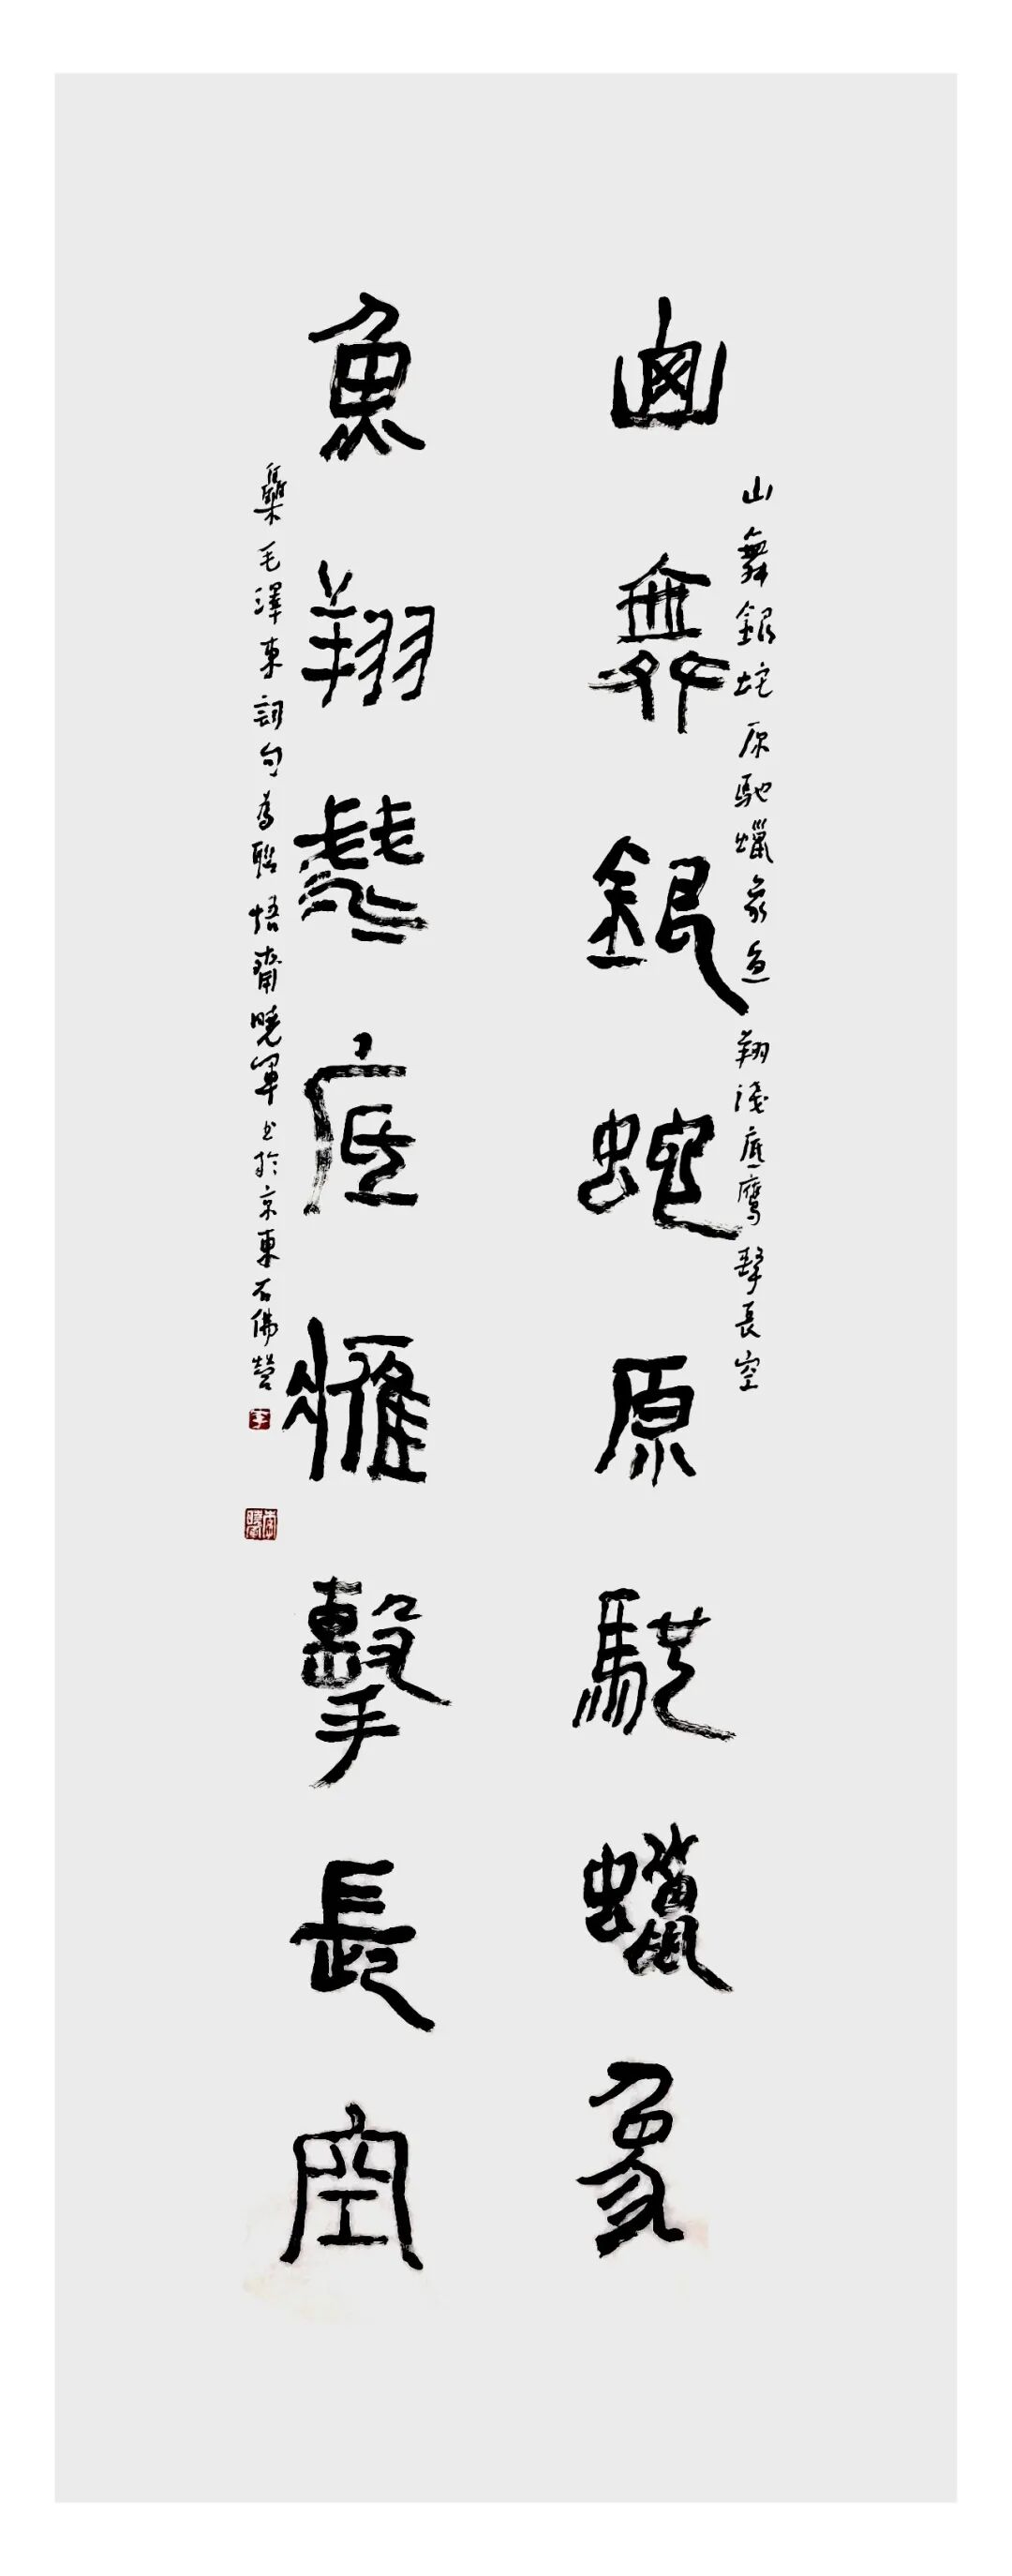 山舞銀蛇原馳蠟象魚翔淺底鷹擊長空
山舞銀蛇原馳蠟象
魚翔淺底鷹擊長空
集毛澤東詞句為聯悟齋曉軍书於京東石佛營
李
李曉軍